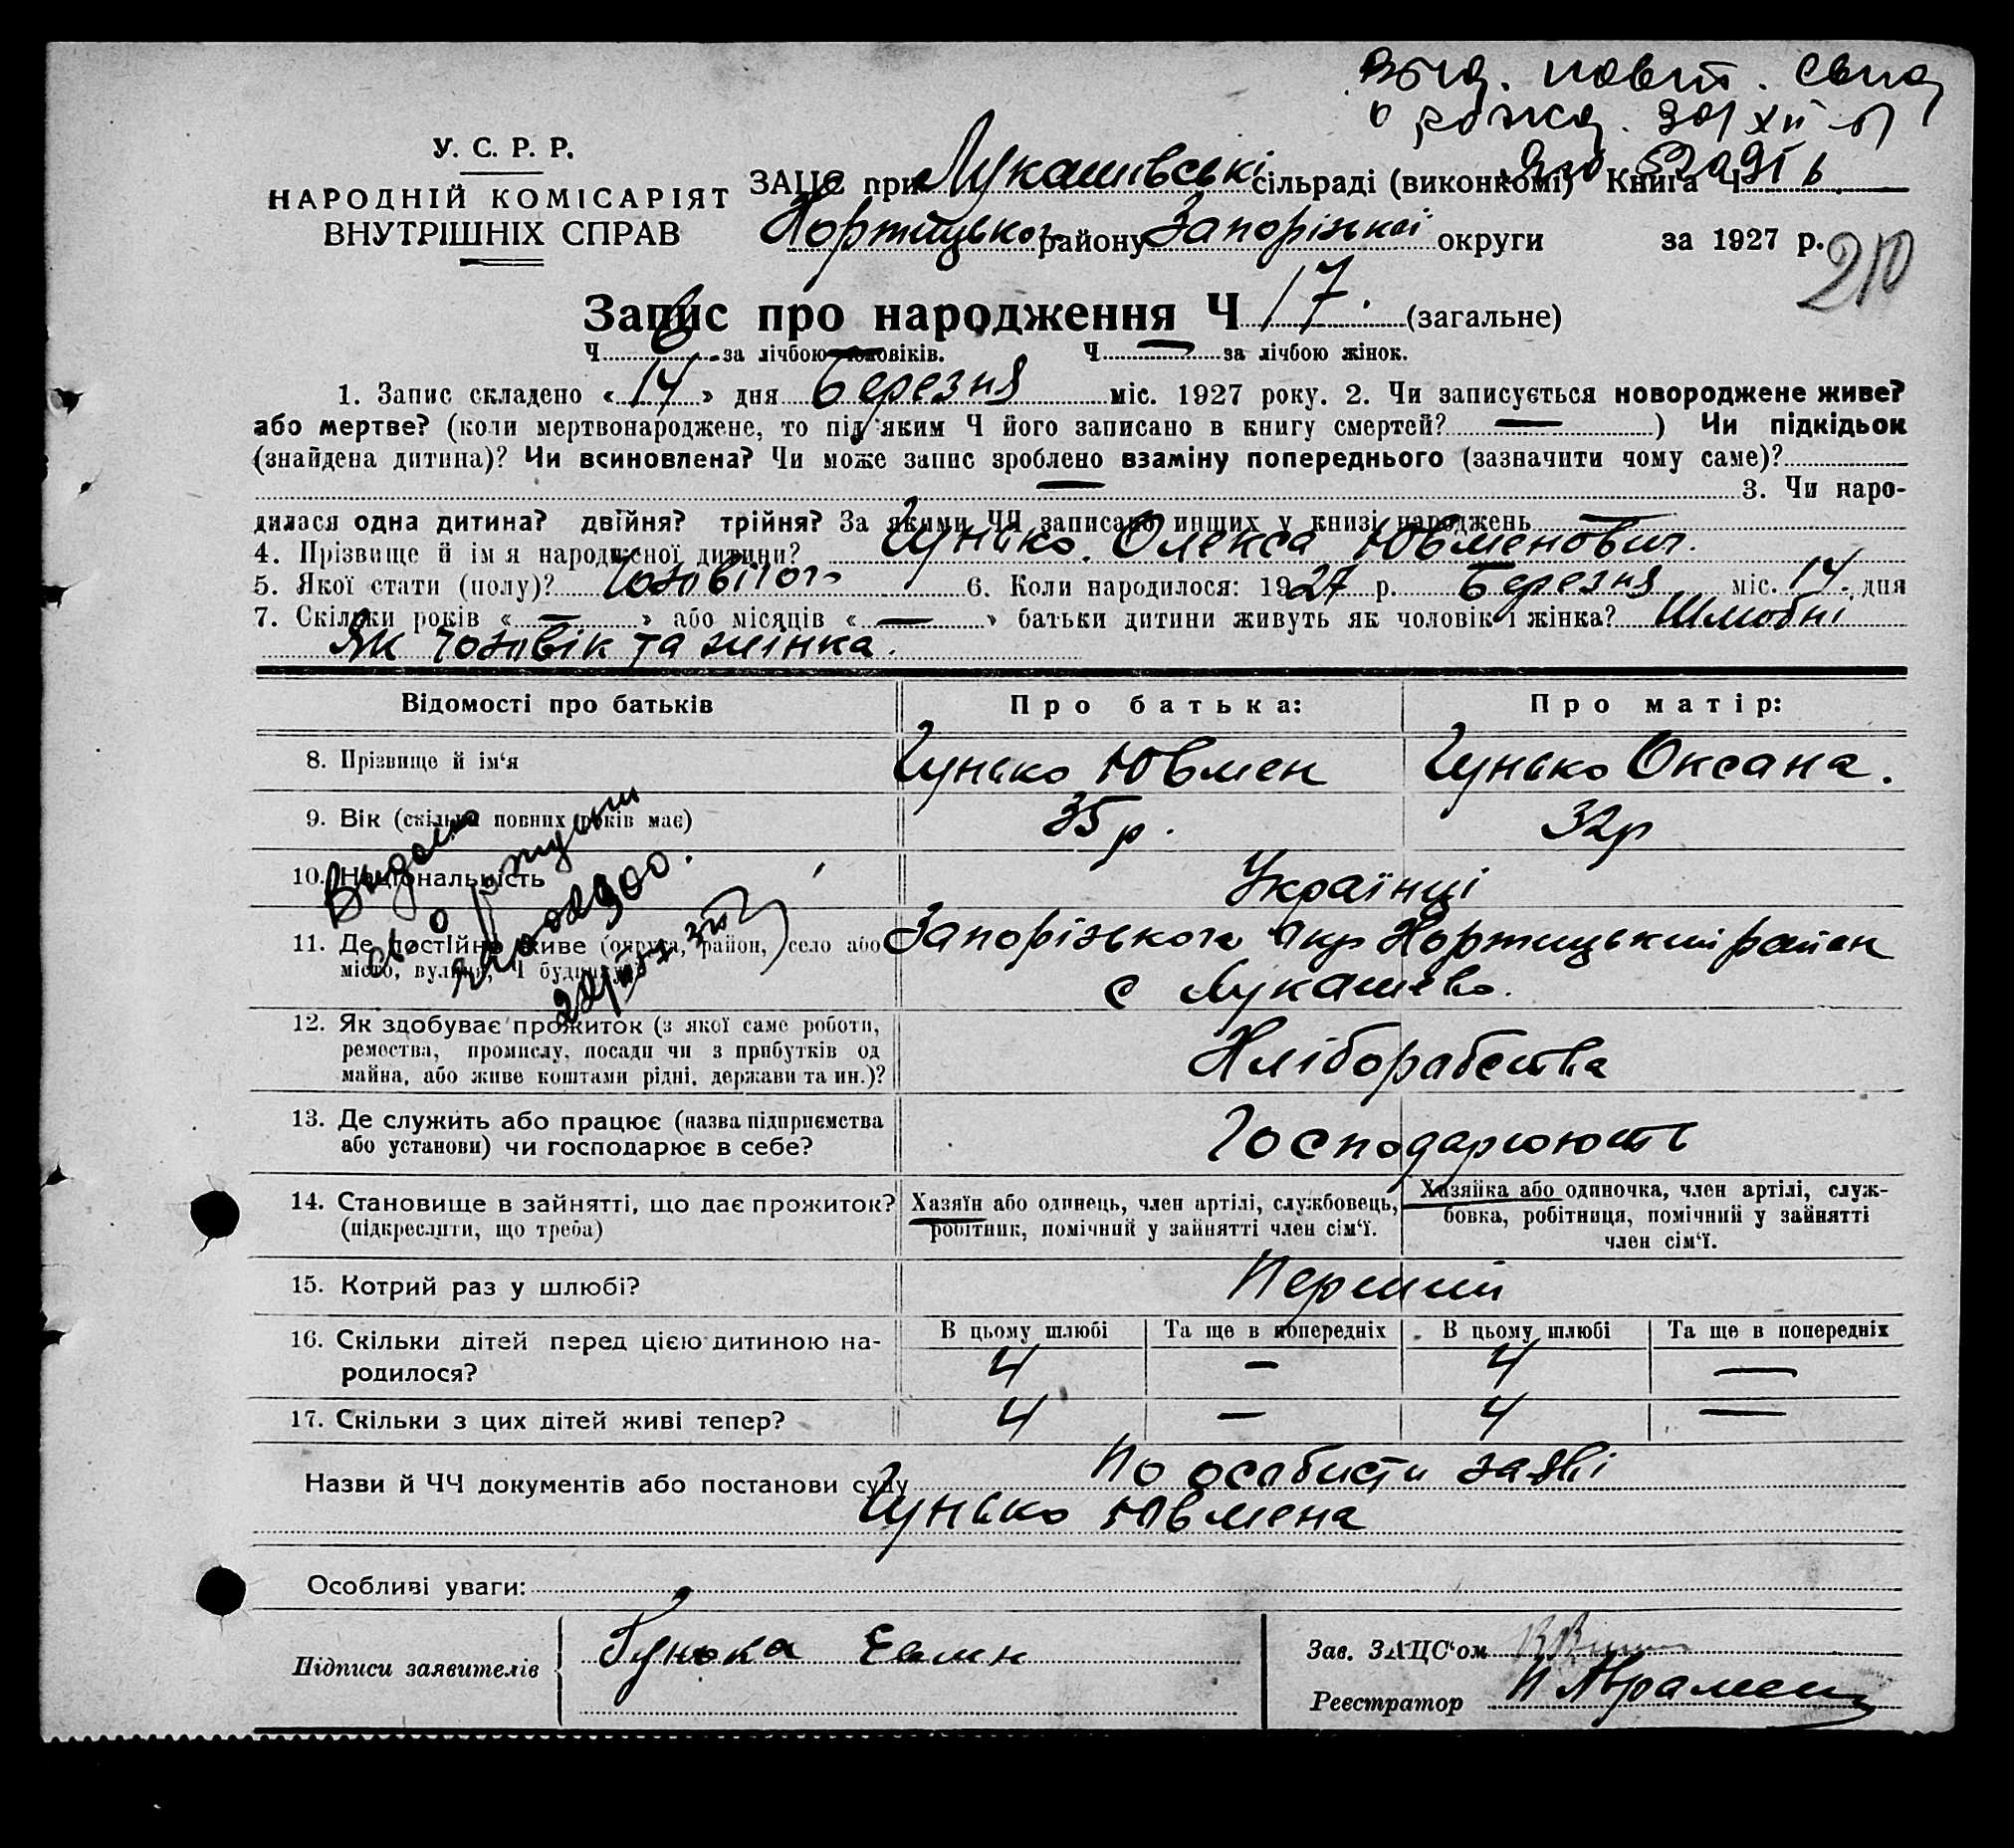 У. С. Р. Р.
НАРОДНІЙ КОМІСАРІЯТ
ВНУТРІШНІХ СПРАВ
ЗАЦС при Лукашівські сільраді (виконкомі) Книга Ч
Хортицького району Запорізької округи за 1927 р.
210
Запис про народження Ч 17. (загальне)
Ч 6 за лічбою чоловіків. Ч — за лічбою жінок.
1. Запис складено « 14 » дня Березня міс. 1927 року. 2. Чи записується новороджене живе?
або мертве? (коли мертвонароджене, то під яким Ч його записано в книгу смертей? — ) Чи підкідьок
(знайдена дитина)? Чи всиновлена? Чи може запис зроблено взаміну попереднього (зазначити чому саме)?
— 3. Чи наро-
дилася одна дитина? двійня? трійня? За якими ЧЧ записано инших у книзі народжень —
4. Прізвище й ім я народженої дитини? Гунько Олекса Ювменович.
5. Якої стати (полу)? Чоловічого 6. Коли народилося: 1927 р. Березня міс. 14 дня
7. Скільки років « — » або місяців « — » батьки дитини живуть як чоловік і жінка? Шлюбні
Як чоловік та жінка.
Відомості про батьків Про батька: Про матір:
8. Прізвище й ім‘я Гунько Ювмен Гунько Оксана.
9. Вік (скільки повних років має) 35 р. 32 р
10. Національність Українці
11. Де постійно живе (округа, район, село або Запорізького Окр Хортицький район
місто, вулиця, Ч будинку) с Лукашево.
12. Як здобуває прожиток (з якої саме роботи,
ремества, промислу, посади чи з прибутків од Хліборабства
майна, або живе коштами рідні, держави та ин.)?
13. Де служить або працює (назва підприємства
або установи) чи господарює в себе? Господарюють
14. Становище в зайнятті, що дає прожиток? Хазяїн або одинець, член артілі, службовець, Хазяйка або одиночка, член артілі, служ-
(підкреслити, що треба) робітник, помічний у зайнятті член сім‘ї. бовка, робітниця, помічний у зайнятті
член сім‘ї.
15. Котрий раз у шлюбі? Перший
16. Скільки дітей перед цією дитиною на- В цьому шлюбі Та ще в попередніх В цьому шлюбі Та ще в попередніх
родилося? 4 — 4 —
17. Скільки з цих дітей живі тепер? 4 — 4 —
Назви й ЧЧ документів або постанови суду По особисти заяві
Гунько Ювмена
Особливі уваги:
Підписи заявителів Гунька Евмн
Зав. ЗАЦС‘ом
Реєстратор